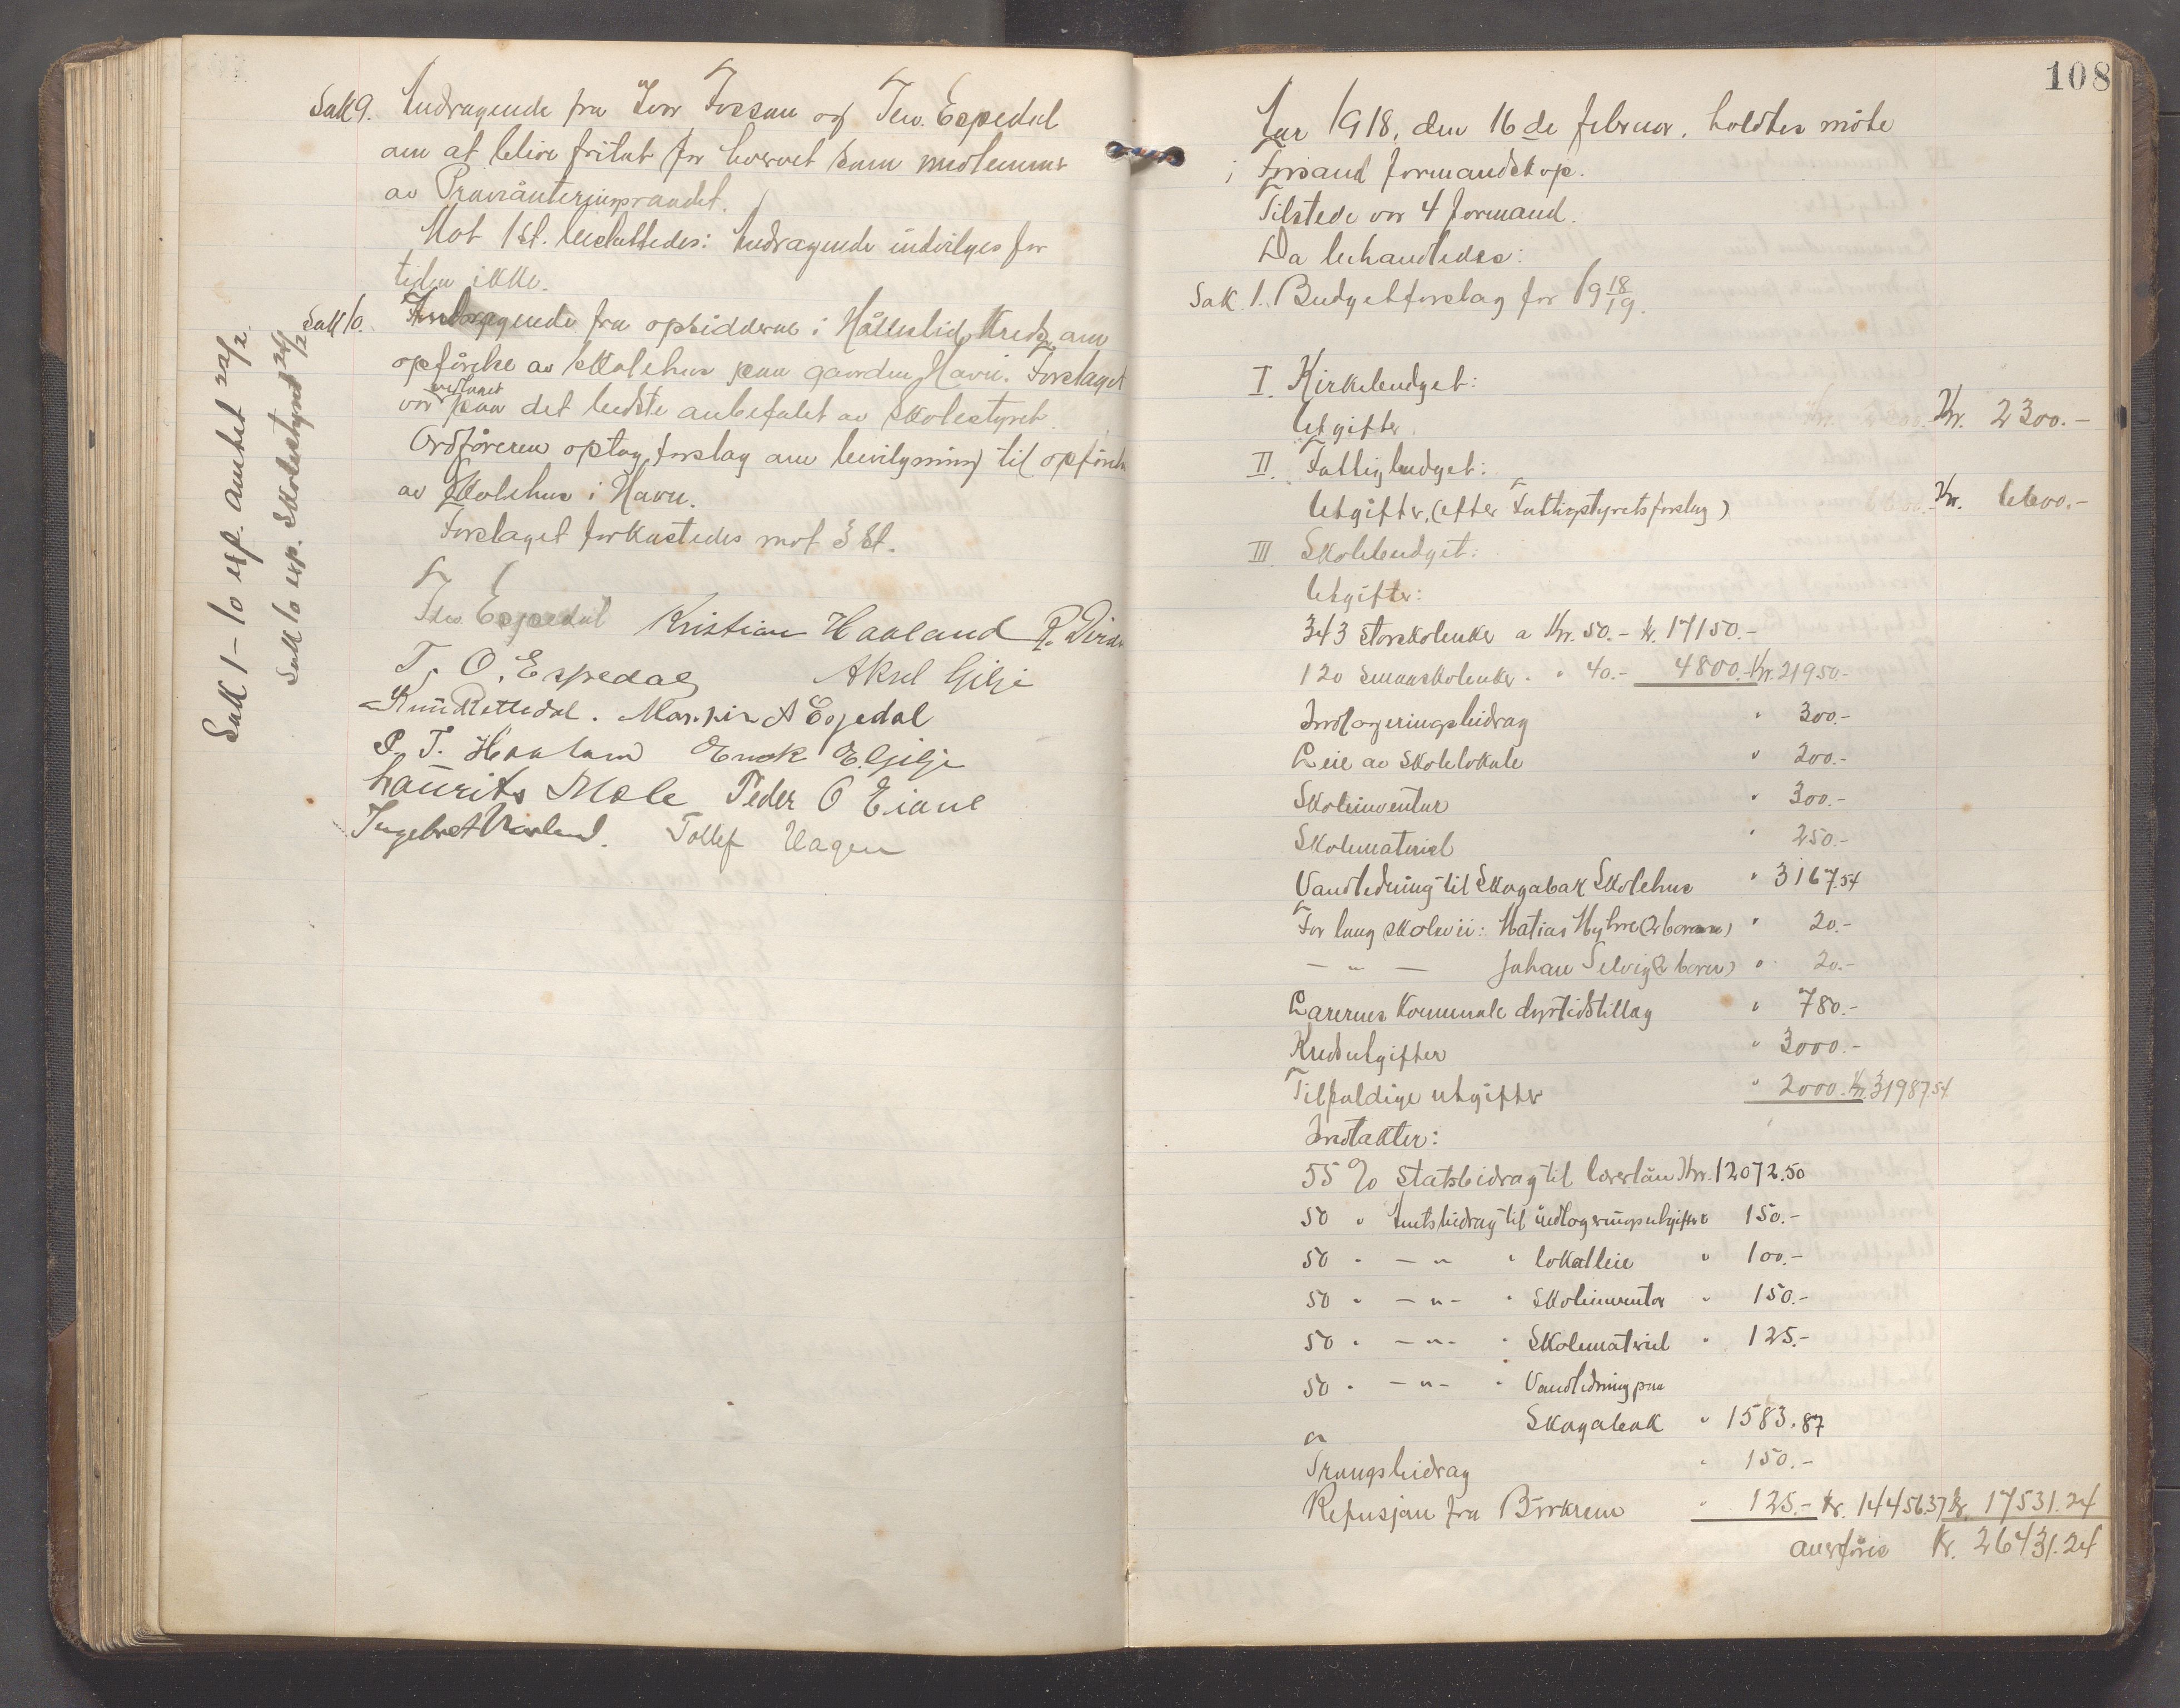 Sak 9. Andragende fra Ivar Fossan og Tew. Espedal
om at blive fritat for hvervet som medlemmer
av Provianteringsraadet.
Mot 1 st. besluttedes: Andragende indvilges for
tiden ikke.
Sak 10. Andragende fra opsidderne i Hålleslid Kreds om
opförelse av skolehus paa gaarden Haviu. Forslaget
var paa det bedste anbefalet av skolestyret.
Ordföreren optog forslag om bevilgning til opförelse
av skolehus i Havn.
Forslaget forkastedes mot 3 st.
Sak 1 - 10 exp. amtet 22/2.
Sak 10 exp. Skolestyret 24/2
Espedal Kristian Haaland
T. O. Espedal Aksel Gilje
Knud Rettedal. Martin A Espedal
P. T. Haaland Enok E. Gilje
Laurits Mæle Peder O Eiane
Ingebret Haaland. Tollef Hagen
108
Aar 1918, den 16de februar, holdtes möte
i Forsand formandskap.
Tilstede var 4 formænd.
Da behandledes:
Sak 1. Budgetforslag for 1918/19.
I. Kirkebudget:
Utgifter Kr. 2300.-
II. Fattigbudget:
Utgifter, (efter Fattigstyrets forslag) Kr. 6600.-
III. Skolebudget:
Utgifter:
343 storskoleuker a Kr. 50.- Kr. 17150.-
120 smaaskoleuker " " 40.- 4800.- Kr. 21950.-
Indlogeringsbidrag " 300.-
Leie av skolelokale " 200.-
Skoleinventar " 300.-
Skolemateriel " 250.-
Vandledning til Skogabak Skolehus " 3167.54
For lang skolevei: Matias Myhre (2 barn) " 20.-
- " - Johan Selvig (2 barn) " 20.-
Lærernes kommunale dyrtidstillæg " 780.-
Kredsutgifter " 3000.-
Tilfældige utgifter " 2000. Kr. 31987.54
Indtækter:
55 % statsbidrag til lærerlön Kr. 12072.50
50 " Amtsbidrag til indlogeringsutgifter " 150.-
50 " - " - " lokalleie " 100.-
50 " - " - " Skoleinventar " 150.-
50 " - " - " Skolemateriel " 125.-
50 " - " - " Vandledning paa
Skogabak " 1583.87
Trangsbidrag " 150.-
Refusjon fra Birkrem " 125.- Kr. 14456.37 Kr. 17531.24
overföres Kr. 26431.24